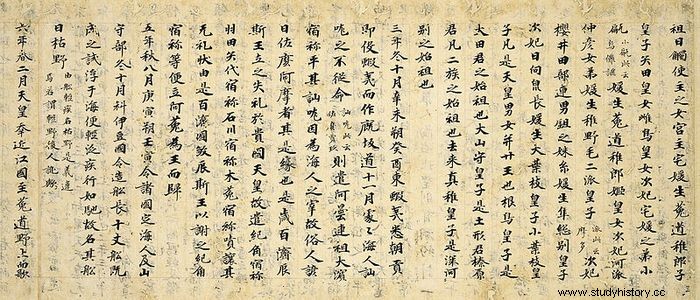 祖日觸使主之女宮主宅媛生菟道稚郎子
皇子矢田皇女雌鳥皇女次妃宅媛之弟小
甂媛生菟道稚郎姬皇女次妃河派
小甂此云
仲彥女弟媛生稚野毛二派皇子次妃
派此云
櫻井田部連男鉏之妹糸媛生隼総別皇子
次妃日向泉長媛生大葉枝皇子小葉枝皇
子凡是天皇男女并廿王也根鳥皇子是
大田君之始祖也大山守皇子是土形君榛原
君凡二族之始祖也去来真稚皇子是深河
別之始祖也
三年冬十月辛未朔癸酉東蝦夷悉朝貢
即役蝦夷而作厩坂道十一月處々海人訕
哤之不従命則遣阿曇連祖大濱
訕哤此云
宿祢平其訕哤因為海人之宰故俗人諺
曰佐麼阿摩者其是緣也是歲百濟辰
斯王立之失礼於貴國天皇故遣紀角宿祢
羽田矢代宿祢石川宿祢木菟宿祢嘖讓其
无礼狀由是百濟國敦辰斯王以謝之紀角
宿祢等便立阿菟為王而歸
五年秋八月庚寅朔壬寅令諸國定海人及山
守部冬十月科伊豆國令造船長十丈船既
成之試浮于海便輕泛疾行如馳故名其船
曰枯野
由船輕疾名枯野是義違
焉若謂輕野後人訛歟
六年春二月天皇幸近江國至菟道野上而歌
www.studyhistory.cc